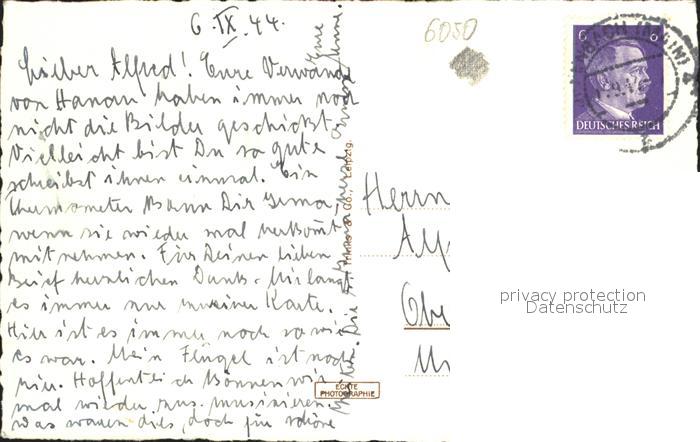 6. IX. 44.
6050
Lieber Alfred! Eure Verwand
von Hanau haben immer noch
nicht die Bilder geschickt.
Vielleicht bist Du so gut u.
schreibst ihnen einmal. Ein
Thermometer kann Dir Irma
wenn sie wieder mal herkommt
mitnehmen. Für Deinen lieben
Brief herzlichen Dank. Mir langt
es immer nur zu einer Karte.
Hier ist es immer noch so wie
es war. Mein Flügel ist noch
hier. Hoffentlich können wir
mal wieder zus. musizieren.
Das waren dies, doch für schöne
Die
Eure
Anni.
Co., Leipzig.
ECHTE
PHOTOGRAPHIE
6 6
DEUTSCHES REICH
Herrn
Obe
privacy protection
Datenschutz